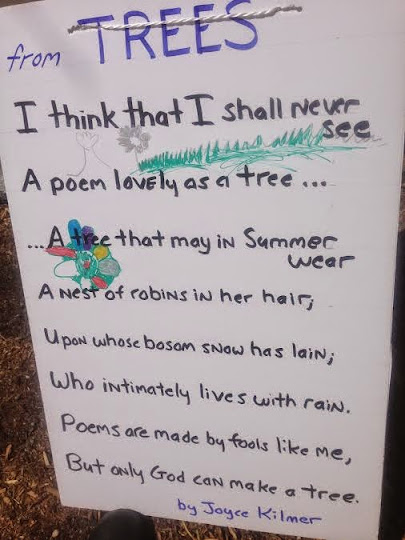 from TREES
I think that I shall never
see
A poem lovely as a tree ...
...A tree that may in Summer
wear
A nest of robins in her hair;
Upon whose bosom snow has lain;
Who intimately lives with rain.
Poems are made by fools like me,
But only God can make a tree.
by Joyce Kilmer